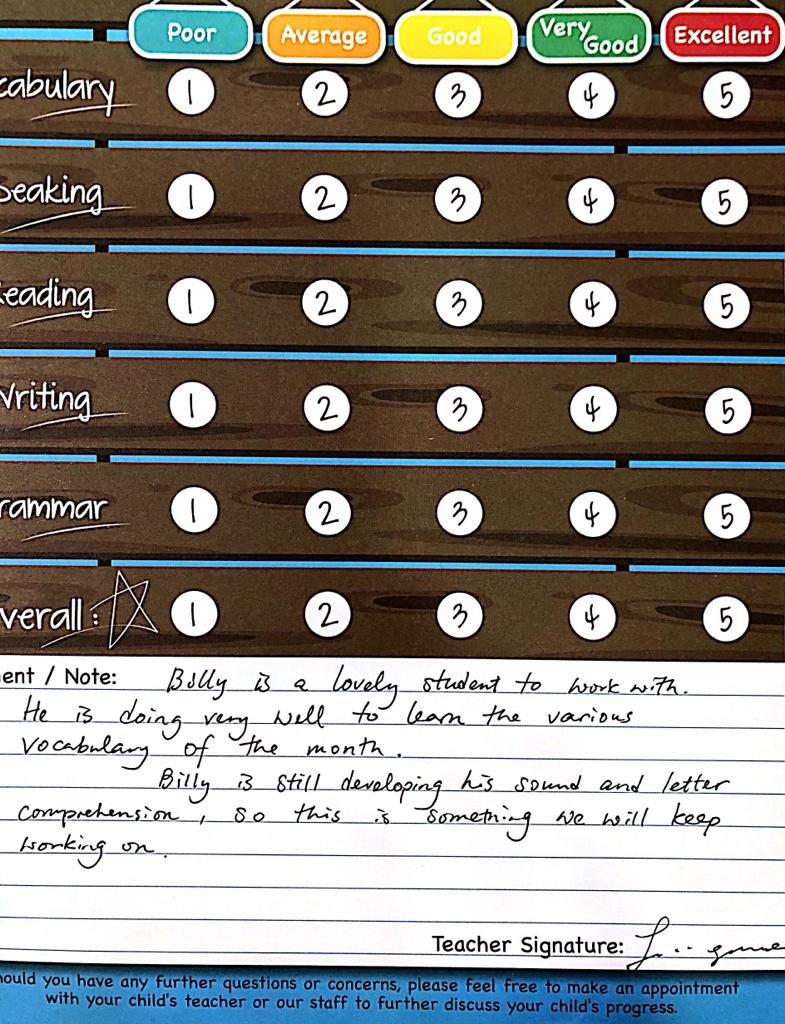 Poor Average Good Very Good Excellent
cabulary 1 2 3 4 5
peaking 1 2 3 4 5
eading 1 2 3 4 5
Writing 1 2 3 4 5
rammar 1 2 3 4 5
verall : 1 2 3 4 5
ent / Note: Billy is a lovely student to work with.
He is doing very well to learn the various
vocabulary of the month.
Billy is still developing his sound and letter
comprehension, so this is something we will keep
working on.
Teacher Signature:
hould you have any further questions or concerns, please feel free to make an appointment
with your child's teacher or our staff to further discuss your child's progress.